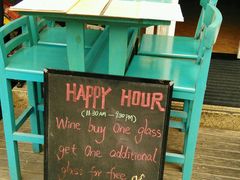 HAPPY HOUR
(11:30AM - 9:00PM)
Wine buy One glass
get One additional
glass for free of